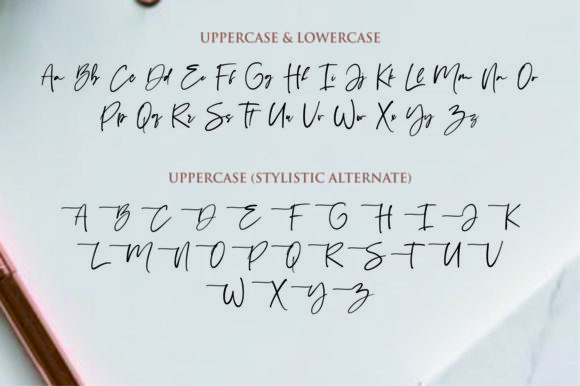 UPPERCASE & LOWERCASE
Aa Bb Cc Dd Ee Ff Gg Hh Ii Jj Kk Ll Mm Nn Oo
Pp Qq Rr Ss Tt Uu Vv Ww Xx Yy Zz
UPPERCASE (STYLISTIC ALTERNATE)
A B C D E F G H I J K
L M N O P Q R S T U V
W X Y Z